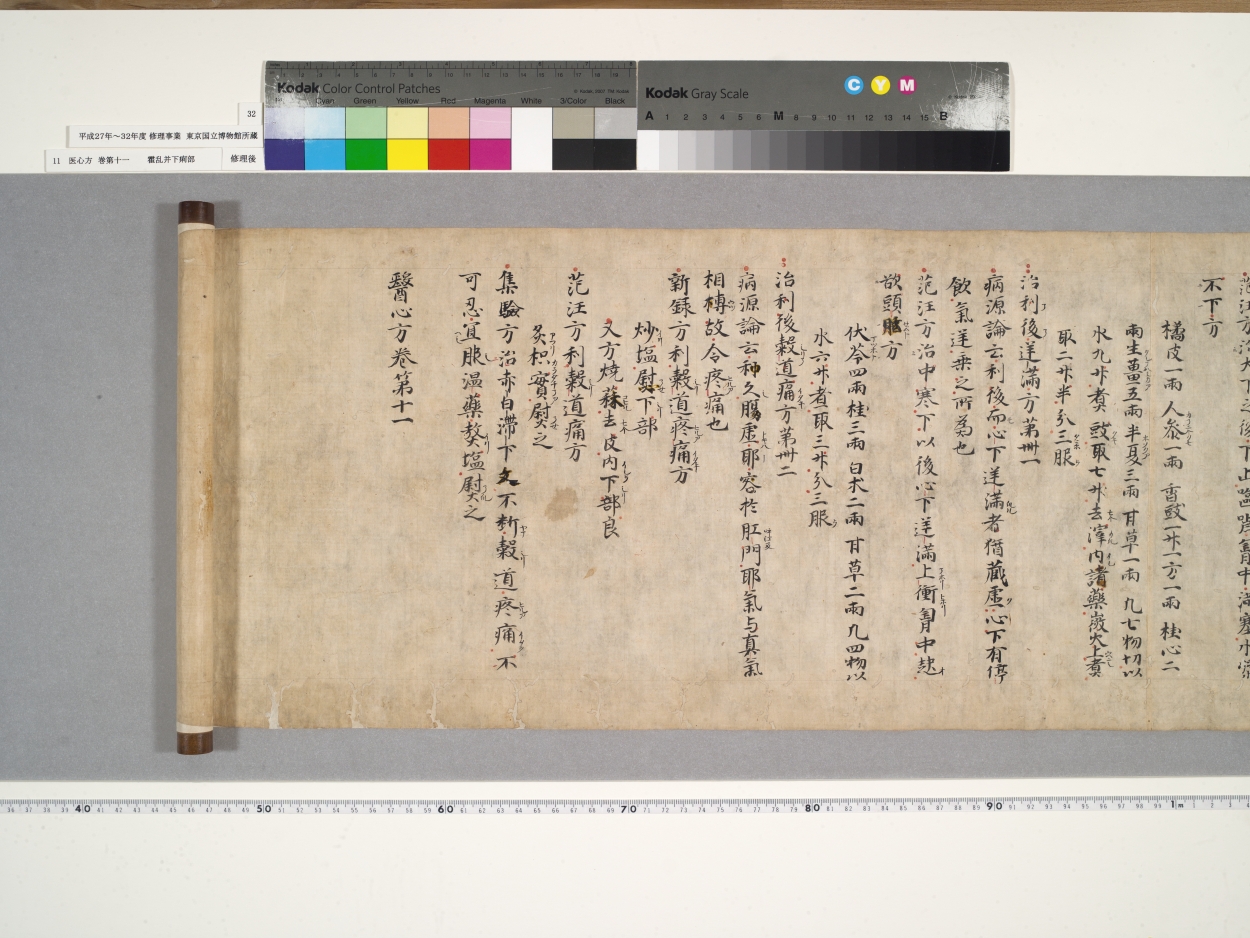 Kodak Color Control Patches
© Kodak, 2007 TM: Kodak
Cyan Green Yellow Red Magenta White 3/Color Black
Kodak Gray Scale
C Y M
A 1 2 3 4 5 6 M 8 9 10 11 12 13 14 15 B
32
平成27年～32年度 修理事業 東京国立博物館所蔵
11 医心方 巻第十一 霍乱并下痢部 修理後
不下方
橘皮一兩 人參一兩 香豉一升一方一兩 桂心二
兩生薑五兩 半夏三兩 甘草一兩 凡七物切以
水九升煮豉取七升去滓内諸藥微火上煮
取二升半分三服
治利後逆滿方第卌一
病源論云利後而心下逆滿者猶藏虛心下有停
飲氣逆乘之所為也
范汪方治中寒下以後心下逆滿上衝胷中起
欲頭眩方
伏苓四兩 桂三兩 白朮二兩 甘草二兩 凡四物以
水六升煮取三升分三服
治利後穀道痛方第卌二
病源論云利久腸虛耶容於肛門耶氣与真氣
相榑故令疼痛也
新錄方利穀道疼痛方
炒塩熨下部
又方燒蒜去皮内下部良
范汪方利穀道痛方
炙枳實熨之
集驗方治赤白滯下不斷穀道疼痛不
可忍宜服温藥熬塩熨之
醫心方卷第十一
40 50 60 70 80 90 1m